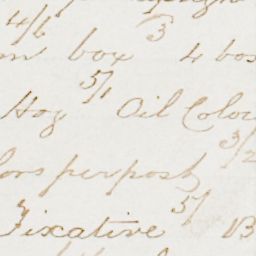 4/6 3
box 4 box
5/1
Hog Oil Colou
3/2
per post
5/
Fixative B